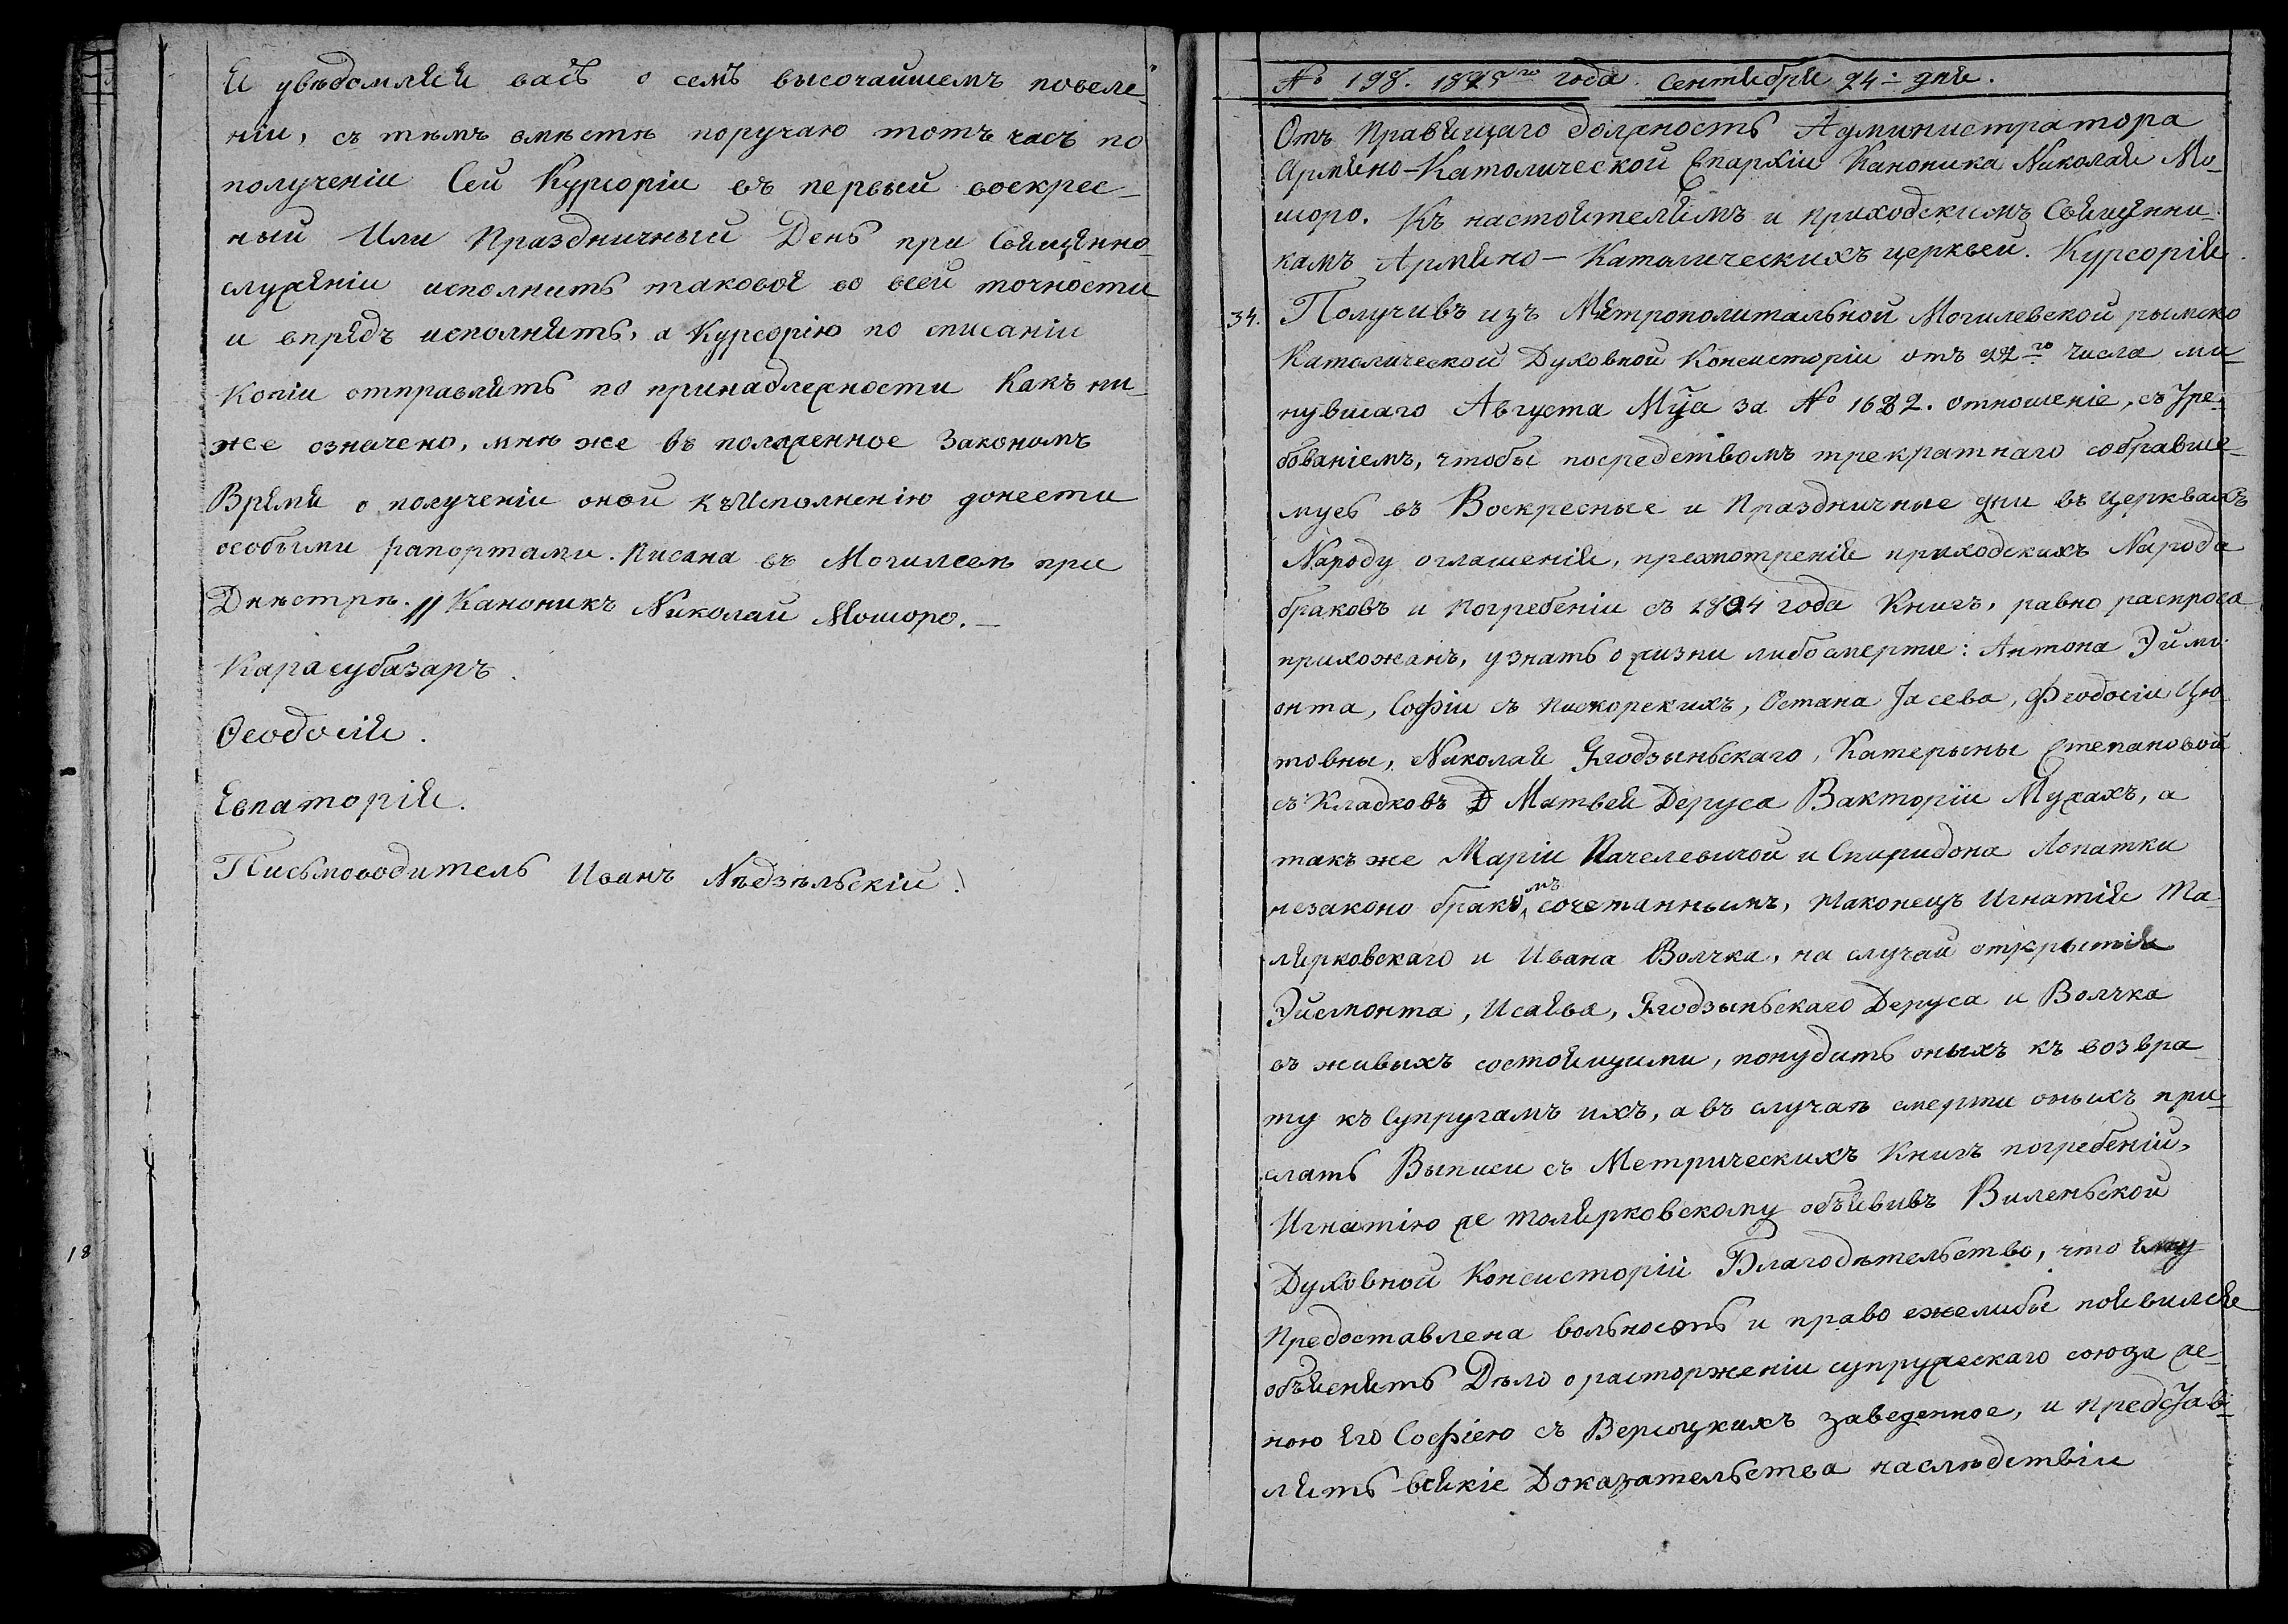 Я увѣдомляя васъ о семъ высочайшемъ повеле-
ніи, съ тѣмъ вмѣстѣ поручаю тотъ часъ по
полученіи Сей Курсоріи въ первый воскрес-
ный Или Праздничный День при Священно-
служеніи исполнить таковое во всей точности
и впредъ исполнять, а Курсорію по списаніи
Копіи отправлять по принадлежности Какъ ни-
же означено, мнѣ же въ положенное Закономъ
Время о полученіи оной къ Исполненію донести
особыми рапортами. Писана въ Могилевѣ при
Днѣстрѣ. // Каноникъ Николай Мошоро.—
Карасубазаръ.
Ѳеодосія.
Евпаторія.
Письмоводитель Иванъ Нѣдзѣльскій.
18
№ 198. 1825го года. Сентября 24: дня.
Отъ Правящаго должность Администратора
Армяно-Католической Епархіи Каноника Николая Мо-
шоро. Къ настоятелямъ и приходскимъ Священни-
камъ Армяно-Католическихъ церквей. Курсорія.
34. Получивъ изъ Метрополитальной Могилевской рымско
Католической Духовной Консисторіи отъ 22го числа ми-
нувшаго Августа Мца за № 1682. отношеніе, съ Тре-
бованіемъ, чтобы посредствомъ трекратнаго собравше-
муся въ Воскресные и Праздничные дни въ Церквахъ
Народу оглашенія, пресмотренія приходскихъ Народа
браковъ и погребеніи съ 1804 года Книгъ, равно распроса
прихожанъ, узнать о жизни либо смерти: Антона Эйсмо-
онта, Софіи съ Пискорскихъ, Остапа Ясева, Феодосіи
товны, Николая Ягодзыньскаго, Катерыны Степановой
съ Кладковъ Матвея Деруса Викторіи Мухахъ, а
такъ же Маріи Пачелевичой и Спиридона Лопатки
незаконо бракомъ сочетанными, Наконецъ Игнатія То-
лярковскаго и Ивана Волчка, на случай открытія
Эйсмонта, Исаева, Ягодзыньскаго Деруса и Волчка
въ живыхъ состоящими, понудить оныхъ къ возвра-
ту къ Супругамъ ихъ, а въ случаѣ смерти оныхъ при-
слать Выписи съ Метрическихъ Книгъ погребеній,
Игнатію же Толярковскому объявивъ Виленьской
Духовной Консисторіи Благодѣтельство, что ему
Предоставлена вольность и право ежелибы появился
объяснять Дѣло о расторженіи супружескаго союза же-
ною Его Софіею съ Версоцкихъ заведенное, и представ-
лять всякіе Доказательства наслѣдствіи